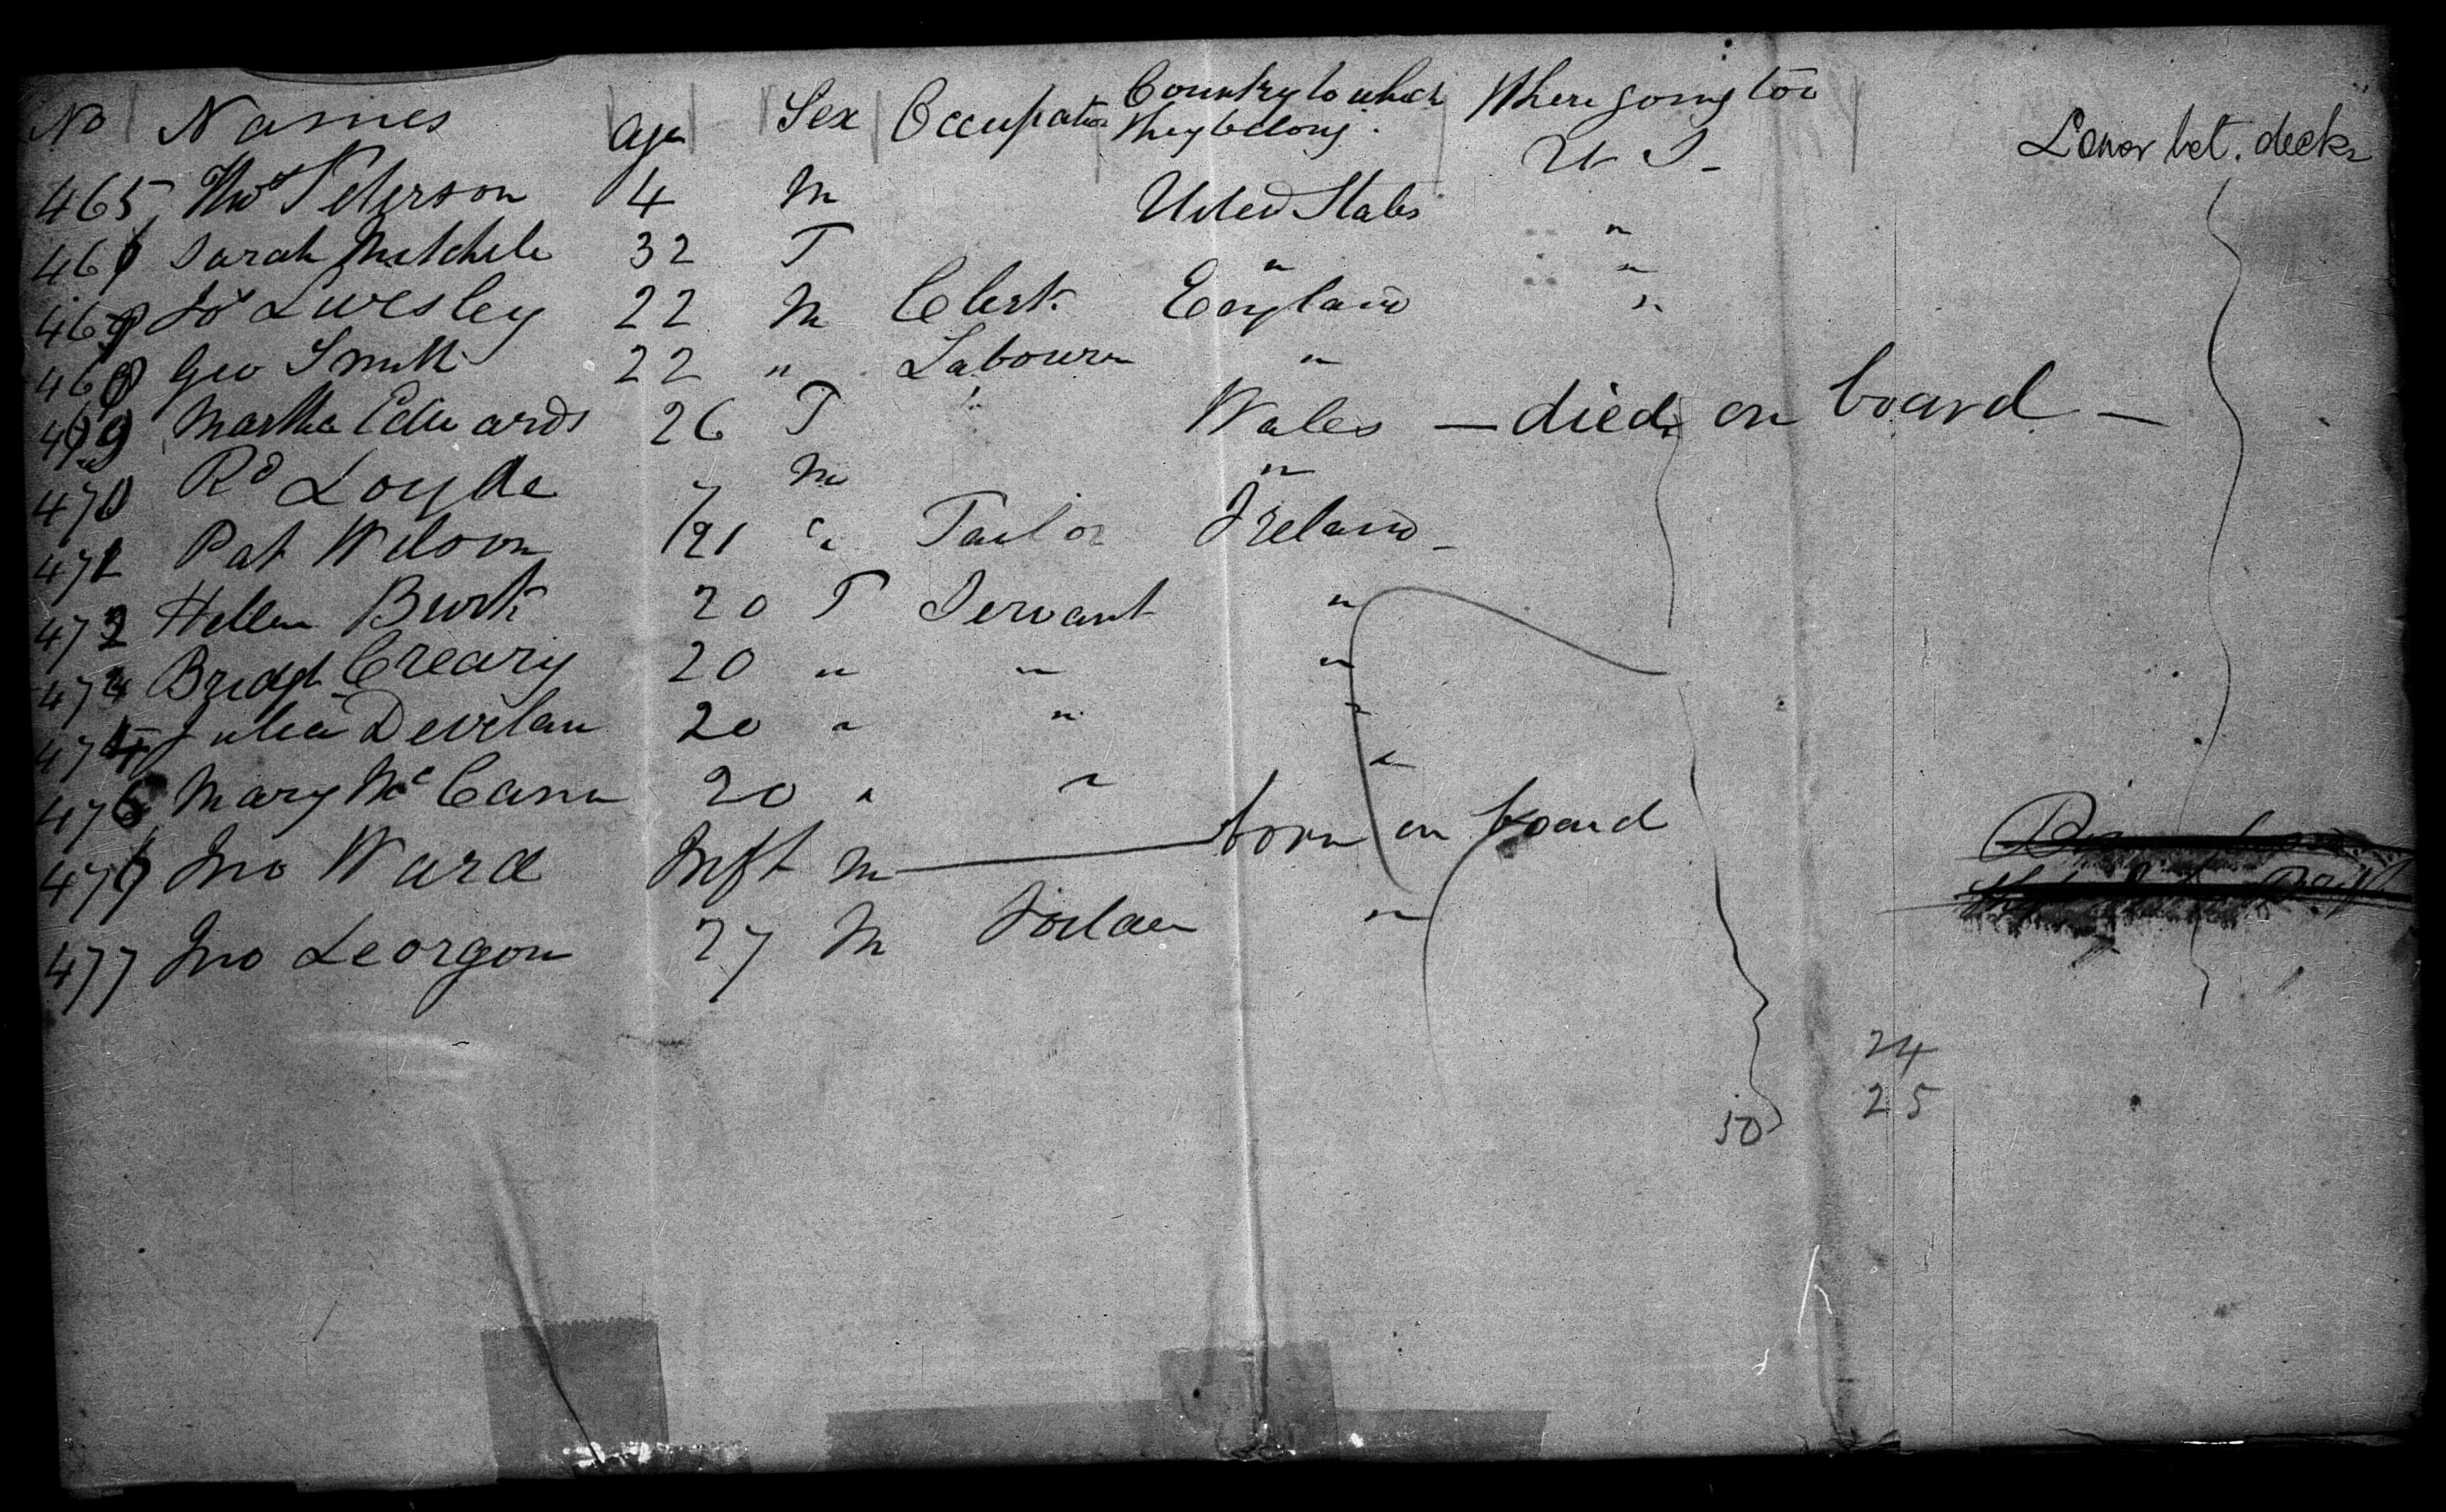 No Names Age Sex Occupation Country to which they belong. Where going too
Lower bet. decks
U S -
465 Thos Peterson 4 M United States
466 Sarah Mitchele 32 F " "
467 Jos Livesley 22 M Clerk England "
468 Geo Smith 22 " Labourer " "
469 Martha Edwards 26 F Wales — died on board —
470 Rd Loyde 7 M "
471 Pat Wilson 21 " Tailor Ireland -
472 Hellen Burk 20 F Servant "
474 Bridgt Creary 20 " " "
475 Julia Devlan 20 " " "
476 Mary McCann 20 " " "
476 Jno Ward Inft M — born on board
477 Jno Georgon 27 M "
24
25
50